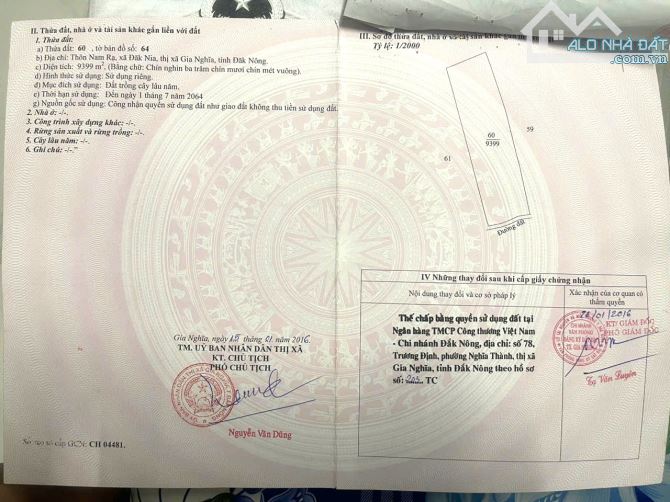 II. Thửa đất, nhà ở và tài sản khác gắn liền với đất
1. Thửa đất:
a) Thửa đất: 60, tờ bản đồ số: 64
b) Địa chỉ: Thôn Nam Rạ, xã Đăk Nia, thị xã Gia Nghĩa, tỉnh Đăk Nông.
c) Diện tích: 9399 m², (Bằng chữ: Chín nghìn ba trăm chín mươi chín mét vuông).
d) Hình thức sử dụng: Sử dụng riêng.
đ) Mục đích sử dụng: Đất trồng cây lâu năm.
e) Thời hạn sử dụng: Đến ngày 1 tháng 7 năm 2064
g) Nguồn gốc sử dụng: Công nhận quyền sử dụng đất như giao đất không thu tiền sử dụng đất.
2. Nhà ở: -/-.
3. Công trình xây dựng khác: -/-.
4. Rừng sản xuất và rừng trồng: -/-.
5. Cây lâu năm: -/-.
6. Ghi chú: -/-."
Gia Nghĩa, ngày 15 tháng 01 năm 2016
TM. UỶ BAN NHÂN DÂN THỊ XÃ
KT. CHỦ TỊCH
PHÓ CHỦ TỊCH
Nguyễn Văn Dũng
Số vào sổ cấp GCN: CH 04481.
III. Sơ đồ thửa đất, nhà ở và tài sản khác gắn
Tỷ lệ: 1/2000
ALO NHÀ ĐẤT
.com.vn
60
9399
59
61
Đường đất
IV Những thay đổi sau khi cấp giấy chứng nhận
Nội dung thay đổi và cơ sở pháp lý
Xác nhận của cơ quan có thẩm quyền
Thế chấp bằng quyền sử dụng đất tại
Ngân hàng TMCP Công thương Việt Nam
- Chi nhánh Đắk Nông, địa chỉ: số 78,
Trương Định, phường Nghĩa Thành, thị xã
Gia Nghĩa, tỉnh Đắk Nông theo hồ sơ
số: TC
/01/2016
KT/ GIÁM ĐỐC
PHÓ GIÁM ĐỐC
Tạ Văn Luyện